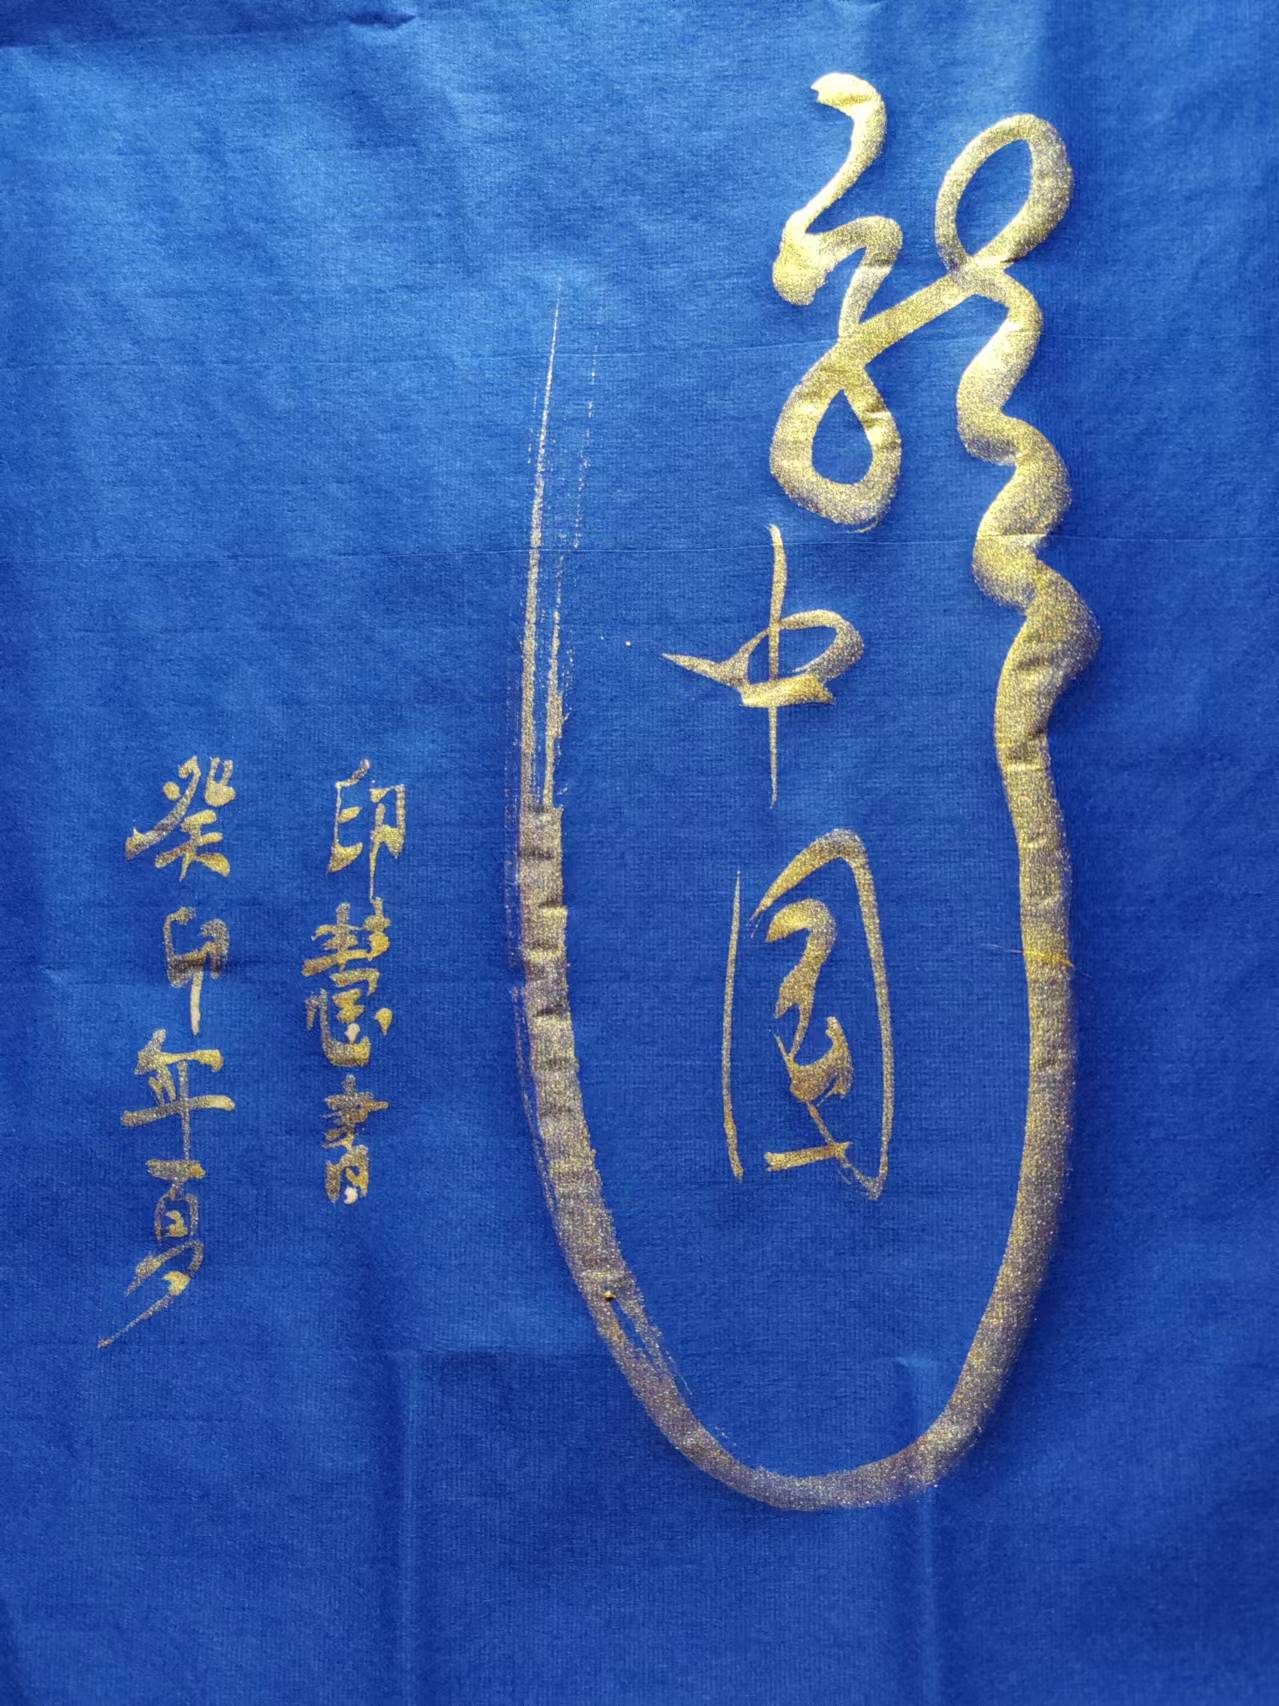 龍
中國
印慧書
癸卯年夏